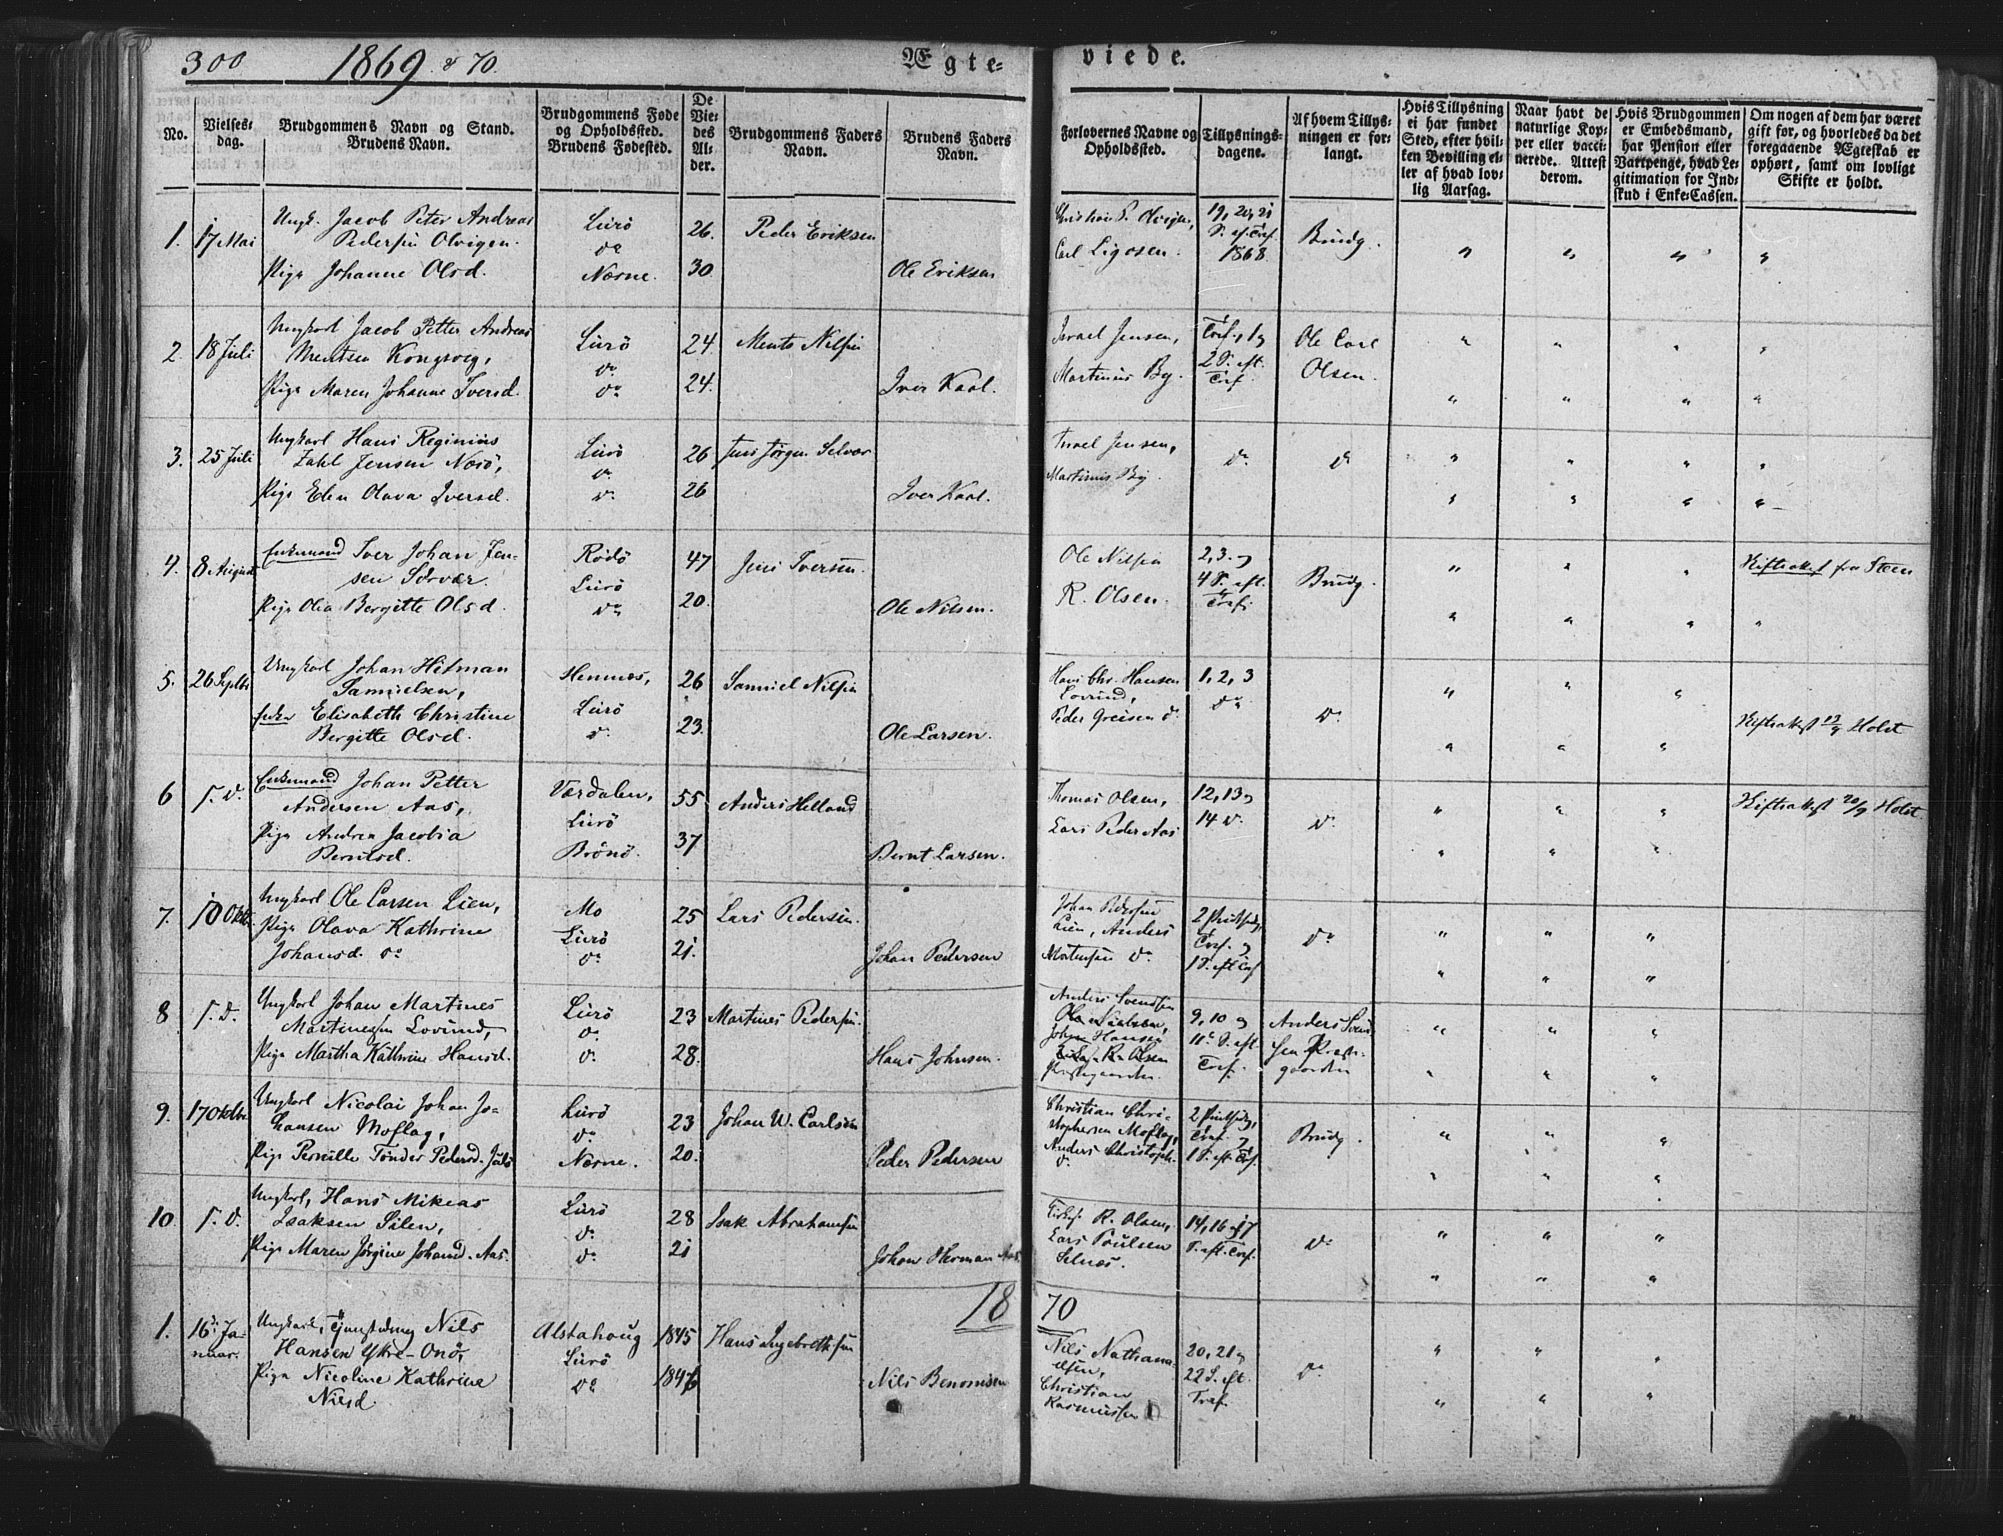 300 1869 & 70. Ægte=
viede.
No.
Vielses=
dag.
Brudgommens Navn og Stand.
Brudens Navn.
Brudgommens Føde
og Opholdssted.
Brudens Fødested.
De
Vie=
des
Al=
der.
Brudgommens Faders
Navn.
Brudens Faders
Navn.
Forlovernes Navne og
Opholdssted.
Tillysnings=
dagene.
Af hvem Tillys=
ningen er for=
langt.
Hvis Tillysning
ei har fundet
Sted, efter hvil=
ken Bevilling el=
ler af hvad lov=
lig Aarsag.
Naar havt de
naturlige Kop=
per eller vacci=
nerede. Attest
derom.
Hvis Brudgommen
er Embedsmand,
har Pension eller
Vartpenge, hvad Le=
gitimation for Ind=
skud i Enke=Cassen.
Om nogen af dem har været
gift før, og hvorledes da det
foregaaende Ægteskab er
ophørt, samt om lovligt
Skifte er holdt.
1. 17 Mai
Ungk. Jacob Peter Andreas
Pedersen Olvigen.
Pige Johanne Olsd.
Lurö
do
Nærne.
26.
30
Peder Eriksen
Ole Eriksen
Christian P. Olvigen,
Carl Ligosen.
19, 20, 21
S. ef. Tref.
1868
Brudg.
2. 18 Juli
Ungkarl Jacob Petter Andreas
Mentsen Kongsvig,
Pige Maren Johanne Iversd.
Lurö
do
do
24.
24.
Ments Nilsen
Iver Kaal.
Israel Jensen,
Martinus By.
Tref., 1 og
2 S. eft.
Tref.
Ole Carl
Olsen.
3. 25 Juli
Ungkarl Hans Reginius
Zahl Jensen Næsö,
Pige Elen Olava Iversd.
Lurö
do
do
26
26
Jens Jörgen Selvær
Iver Kaal.
Israel Jensen,
Martinus By
do
do
4. 8 August
Enkemand Iver Johan Jen-
sen Sörvær.
Pige Olia Bergitte Olsd.
Rödö
Lurö
do
47
20.
Jens Iversen.
Ole Nilsen.
Ole Nilsen
R. Olsen.
2, 3. og
4 S. eft.
Tref.
Brudg.
Skifteattest fra Steen
5. 26 Septbr
Ungkarl Johan Hitman
Samuelsen,
Enke Elisabeth Christine
Bergitte Olsd.
Hemnæs,
Lurö
do
26
23.
Samuel Nilsen
Ole Larsen.
Hans Chr. Hansen
Lovund,
Peder Greisen do
1, 2, 3
do
do
Skifteattest 12/9 Holst
6 S. D.
Enkemand Johan Petter
Andersen Aas,
Pige Andrea Jacobia
Berntsd.
Værdalen,
Lurö
Brönö.
55
37
Anders Helland
Bernt Larsen.
Thomas Olsen,
Lars Peder Aas
12, 13 og
14 do
do
Skifteattest 20/9 Holst
7. 10 Oktbr
Ungkarl Ole Larsen Lien,
Pige Olava Kathrine
Johansd. do
Mo
Lurö
do
25
21.
Lars Pedersen.
Johan Pedersen
Johan Pedersen
Lien, Anders
Mortensen do
Tref. og
1 S. eft Tref
do
8 S. D.
Ungkarl Johan Martines
Martinessen Lovund,
Pige Martha Kathrine Hansd.
Lurö
do
do
23
28.
Martines Pedersen.
Hans Johnsen.
Anders Svendsen
Johan Hansen
R. Olsen
9, 10 og
11 S. eft.
Tref.
Anders Svend
sen Præste-
gaarden
9. 17 Oktbr.
Ungkarl Nicolai Johan Jo-
hansen Moflag,
Pige Pernille Tönder Pedersd.
Lurö
do
Nærne.
23
20.
Johan W. Carlsen
Peder Pedersen
Christian Chri-
stophersen Moflag,
Anders Christoph.
do
Tref. og
1 S. eft Tref.
Brudg.
10 S. D.
Ungkarl, Hans Mikeas
Isaksen Silen,
Pige Maren Jörgine Johansd. Aas.
Lurö
do
do
28
21
Isak Abrahamsen
Johan Herman Aas.
R. Olsen,
Lars Poulsen
Selnæs.
14, 16 og 17
S. eft. Tref.
do
18 70
1. 16de Ja-
nuar.
Ungkarl, Nils
Hansen Ytre-Onö,
Pige Nicoline Kathrine
Nilsd
Alstahoug
Lurö
do
1845
1846
Hans Ingebretsen
Nils Benonisen
Nils Nathana-
elsen,
Christian
Rasmussen
20, 21 og
22 S. eft.
Tref.
do